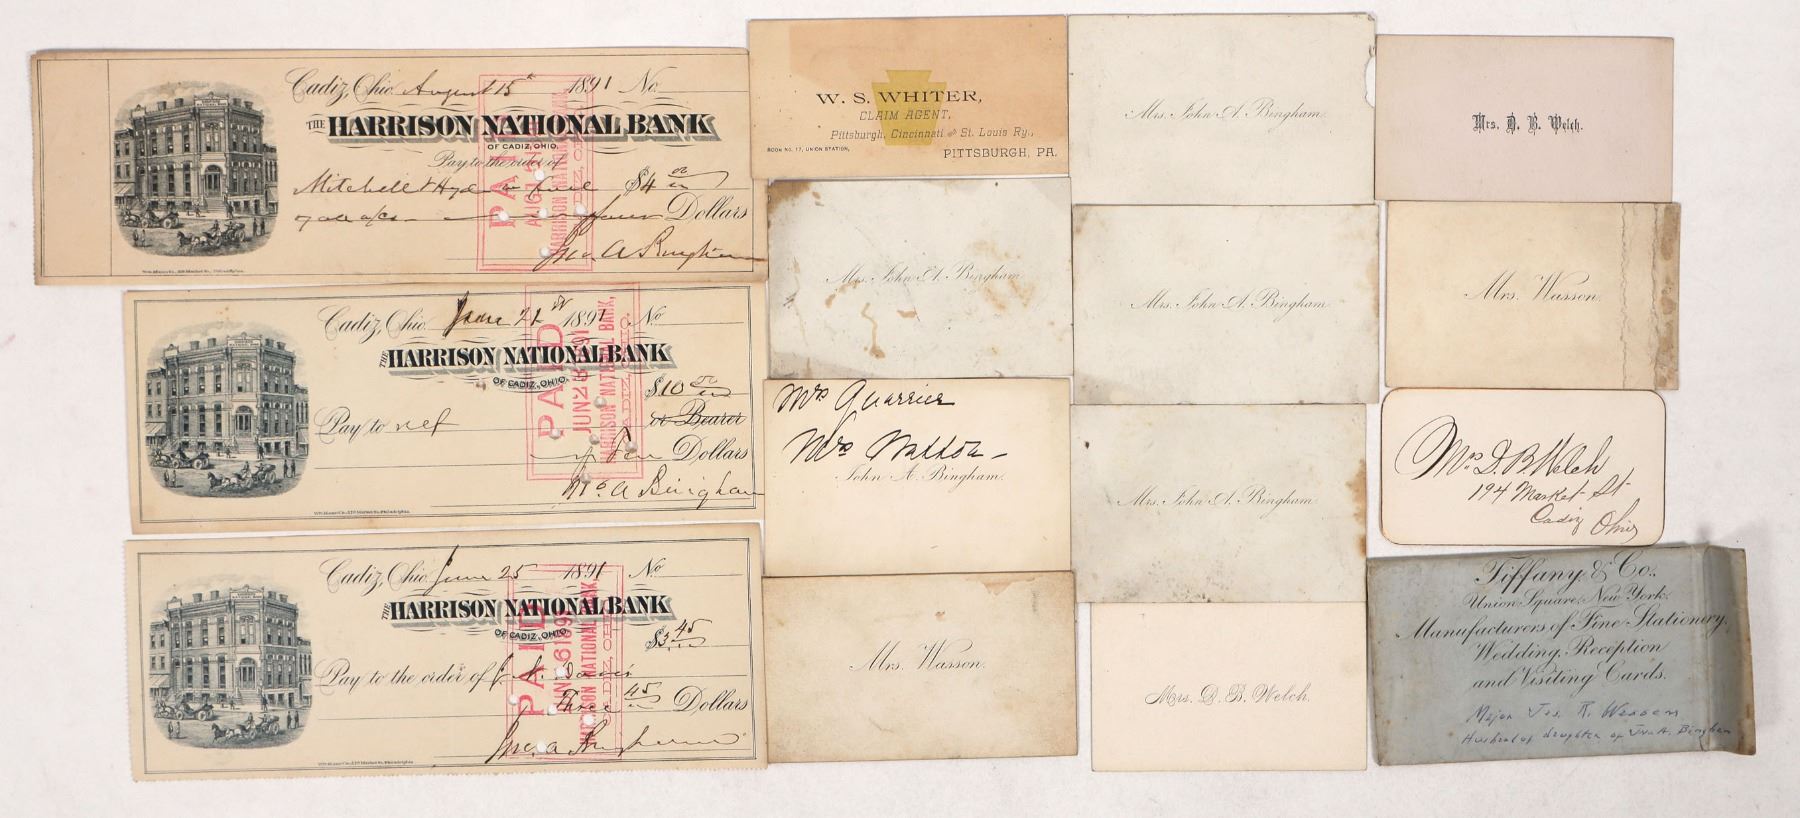 Cadiz, Ohio August 15th 1891 No.
THE HARRISON NATIONAL BANK
OF CADIZ, OHIO.
Pay to the order of
Mitchell & $4 00
four Dollars
Jno. A. Bingham
PAID
AUG 15
HARRISON NATIONAL BANK,
CADIZ, OHIO.
Cadiz, Ohio June 1891 No.
THE HARRISON NATIONAL BANK
OF CADIZ, OHIO.
$10 00
Pay to self or Bearer
Ten Dollars
Jno. A Bingham
PAID
JUN 26 1891
HARRISON NATIONAL BANK,
CADIZ, OHIO.
Cadiz, Ohio June 25 1891 No.
THE HARRISON NATIONAL BANK
OF CADIZ, OHIO.
$3.45
Pay to the order of Davis
Three 45 Dollars
Jno. A Bingham
PAID
JUN 26 1891
HARRISON NATIONAL BANK
CADIZ, OHIO.
W. S. WHITER,
CLAIM AGENT,
Pittsburgh, Cincinnati and St. Louis Ry.,
ROOM NO. 17, UNION STATION,
PITTSBURGH, PA.
Mrs. John A. Bingham
Mrs Quarrier
Mrs
John A. Bingham.
Mrs. Wasson.
Mrs. John A. Bingham.
Mrs. John A. Bingham
Mrs. John A. Bingham
Mrs. D. B. Welch.
Mrs. D. B. Welch.
Mrs. Wasson.
Mrs D. B. Welch
194 Market St
Cadiz Ohio
Tiffany & Co.,
Union Square, New York.
Manufacturers of Fine Stationery,
Wedding, Reception
and Visiting Cards.
Major Jas. R. Wasson
Husband of daughter of Jno A. Bingham